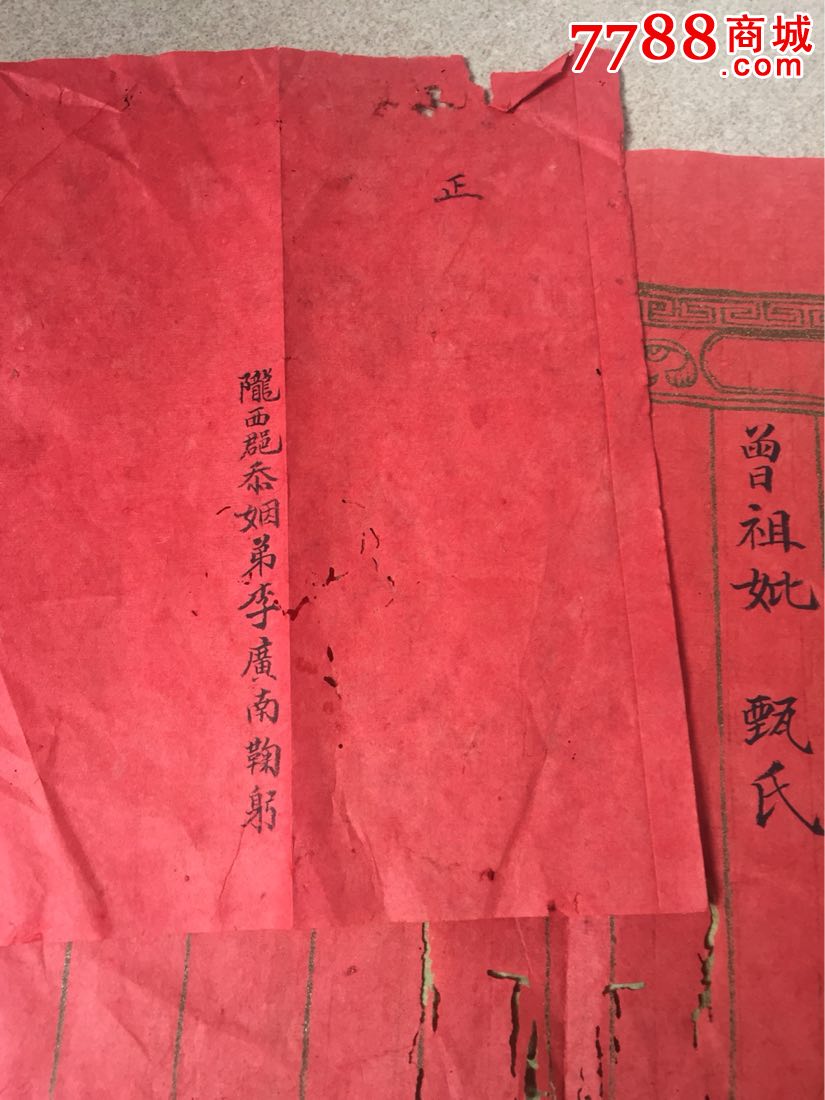 7788商城
.com
曾祖妣 甄氏
正
隴西郡忝姻弟李廣南鞠躬